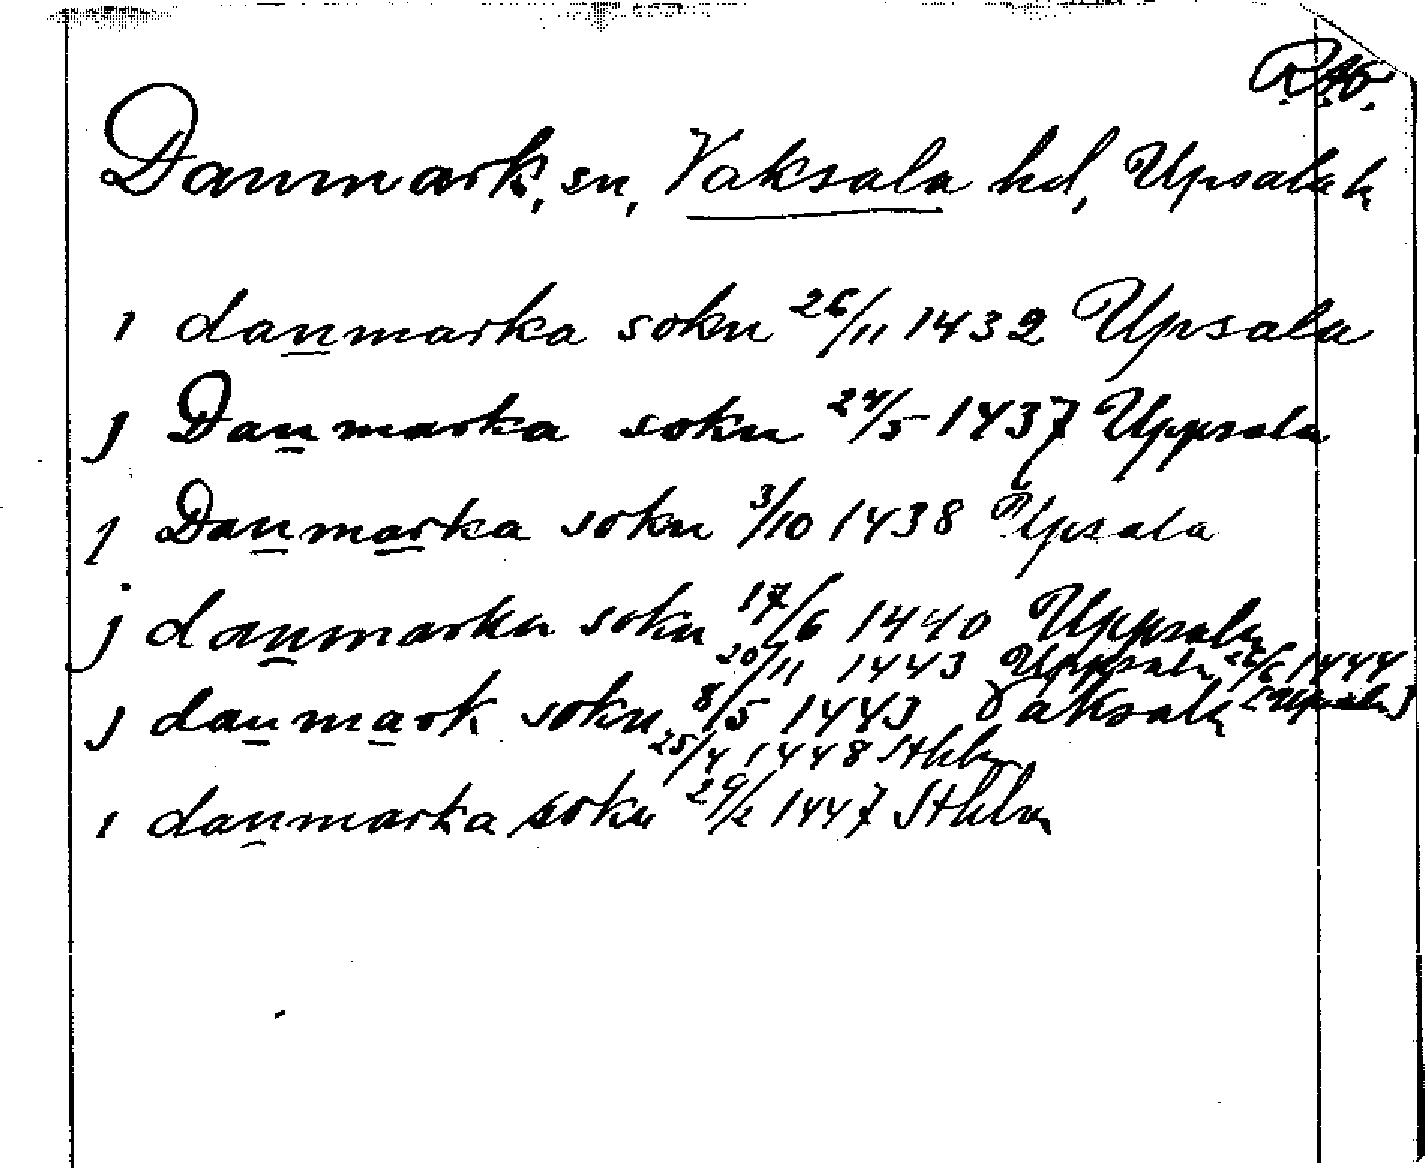 R.A.
Danmark, sn, Vaksala hd, Upsala l.
i danmarka sokn 26/11 1432 Upsala
j Danmarka sokn 24/5 1437 Uppsala
j Danmarka sokn 3/10 1438 Upsala
j danmarka sokn 17/6 1440 Uppsala
20/11 1443 Uppsala 22/6 1444
j danmark sokn 8/5 1443 Vaksala (Upsala)
25/4 1448 Sthlm
i danmarka sokn 29/2 1447 Sthlm